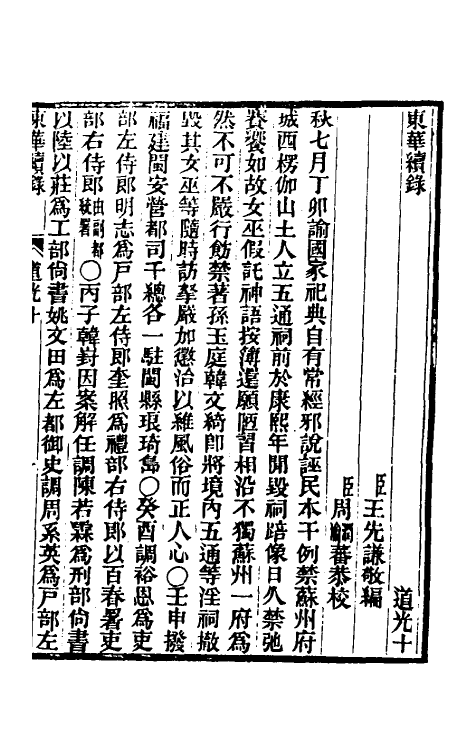 東華續錄
道光十
臣王先謙敬編
臣周瀹蕃恭校
秋七月丁卯諭國家祀典自有常經邪說誣民本干例禁蘇州府
城西楞伽山土人立五通祠前於康熙年閒毀祠踣像日久禁弛
餮饗如故女巫假託神語按簿還願陋習相沿不獨蘇州一府爲
然不可不嚴行飭禁著孫玉庭韓文綺卽將境內五通等淫祠撤
毀其女巫等隨時訪拏嚴加懲治以維風俗而正人心〇壬申撥
福建閩安營都司千總各一駐閩縣琅琦島〇癸酉調裕恩爲吏
部左侍郎明志爲戶部左侍郎奎照爲禮部右侍郎以百春署吏
部右侍郎由副都統署〇丙子韓崶因案解任調陳若霖爲刑部尙書
以陸以莊爲工部尙書姚文田爲左都御史調周系英爲戶部左
東華續錄 道光十